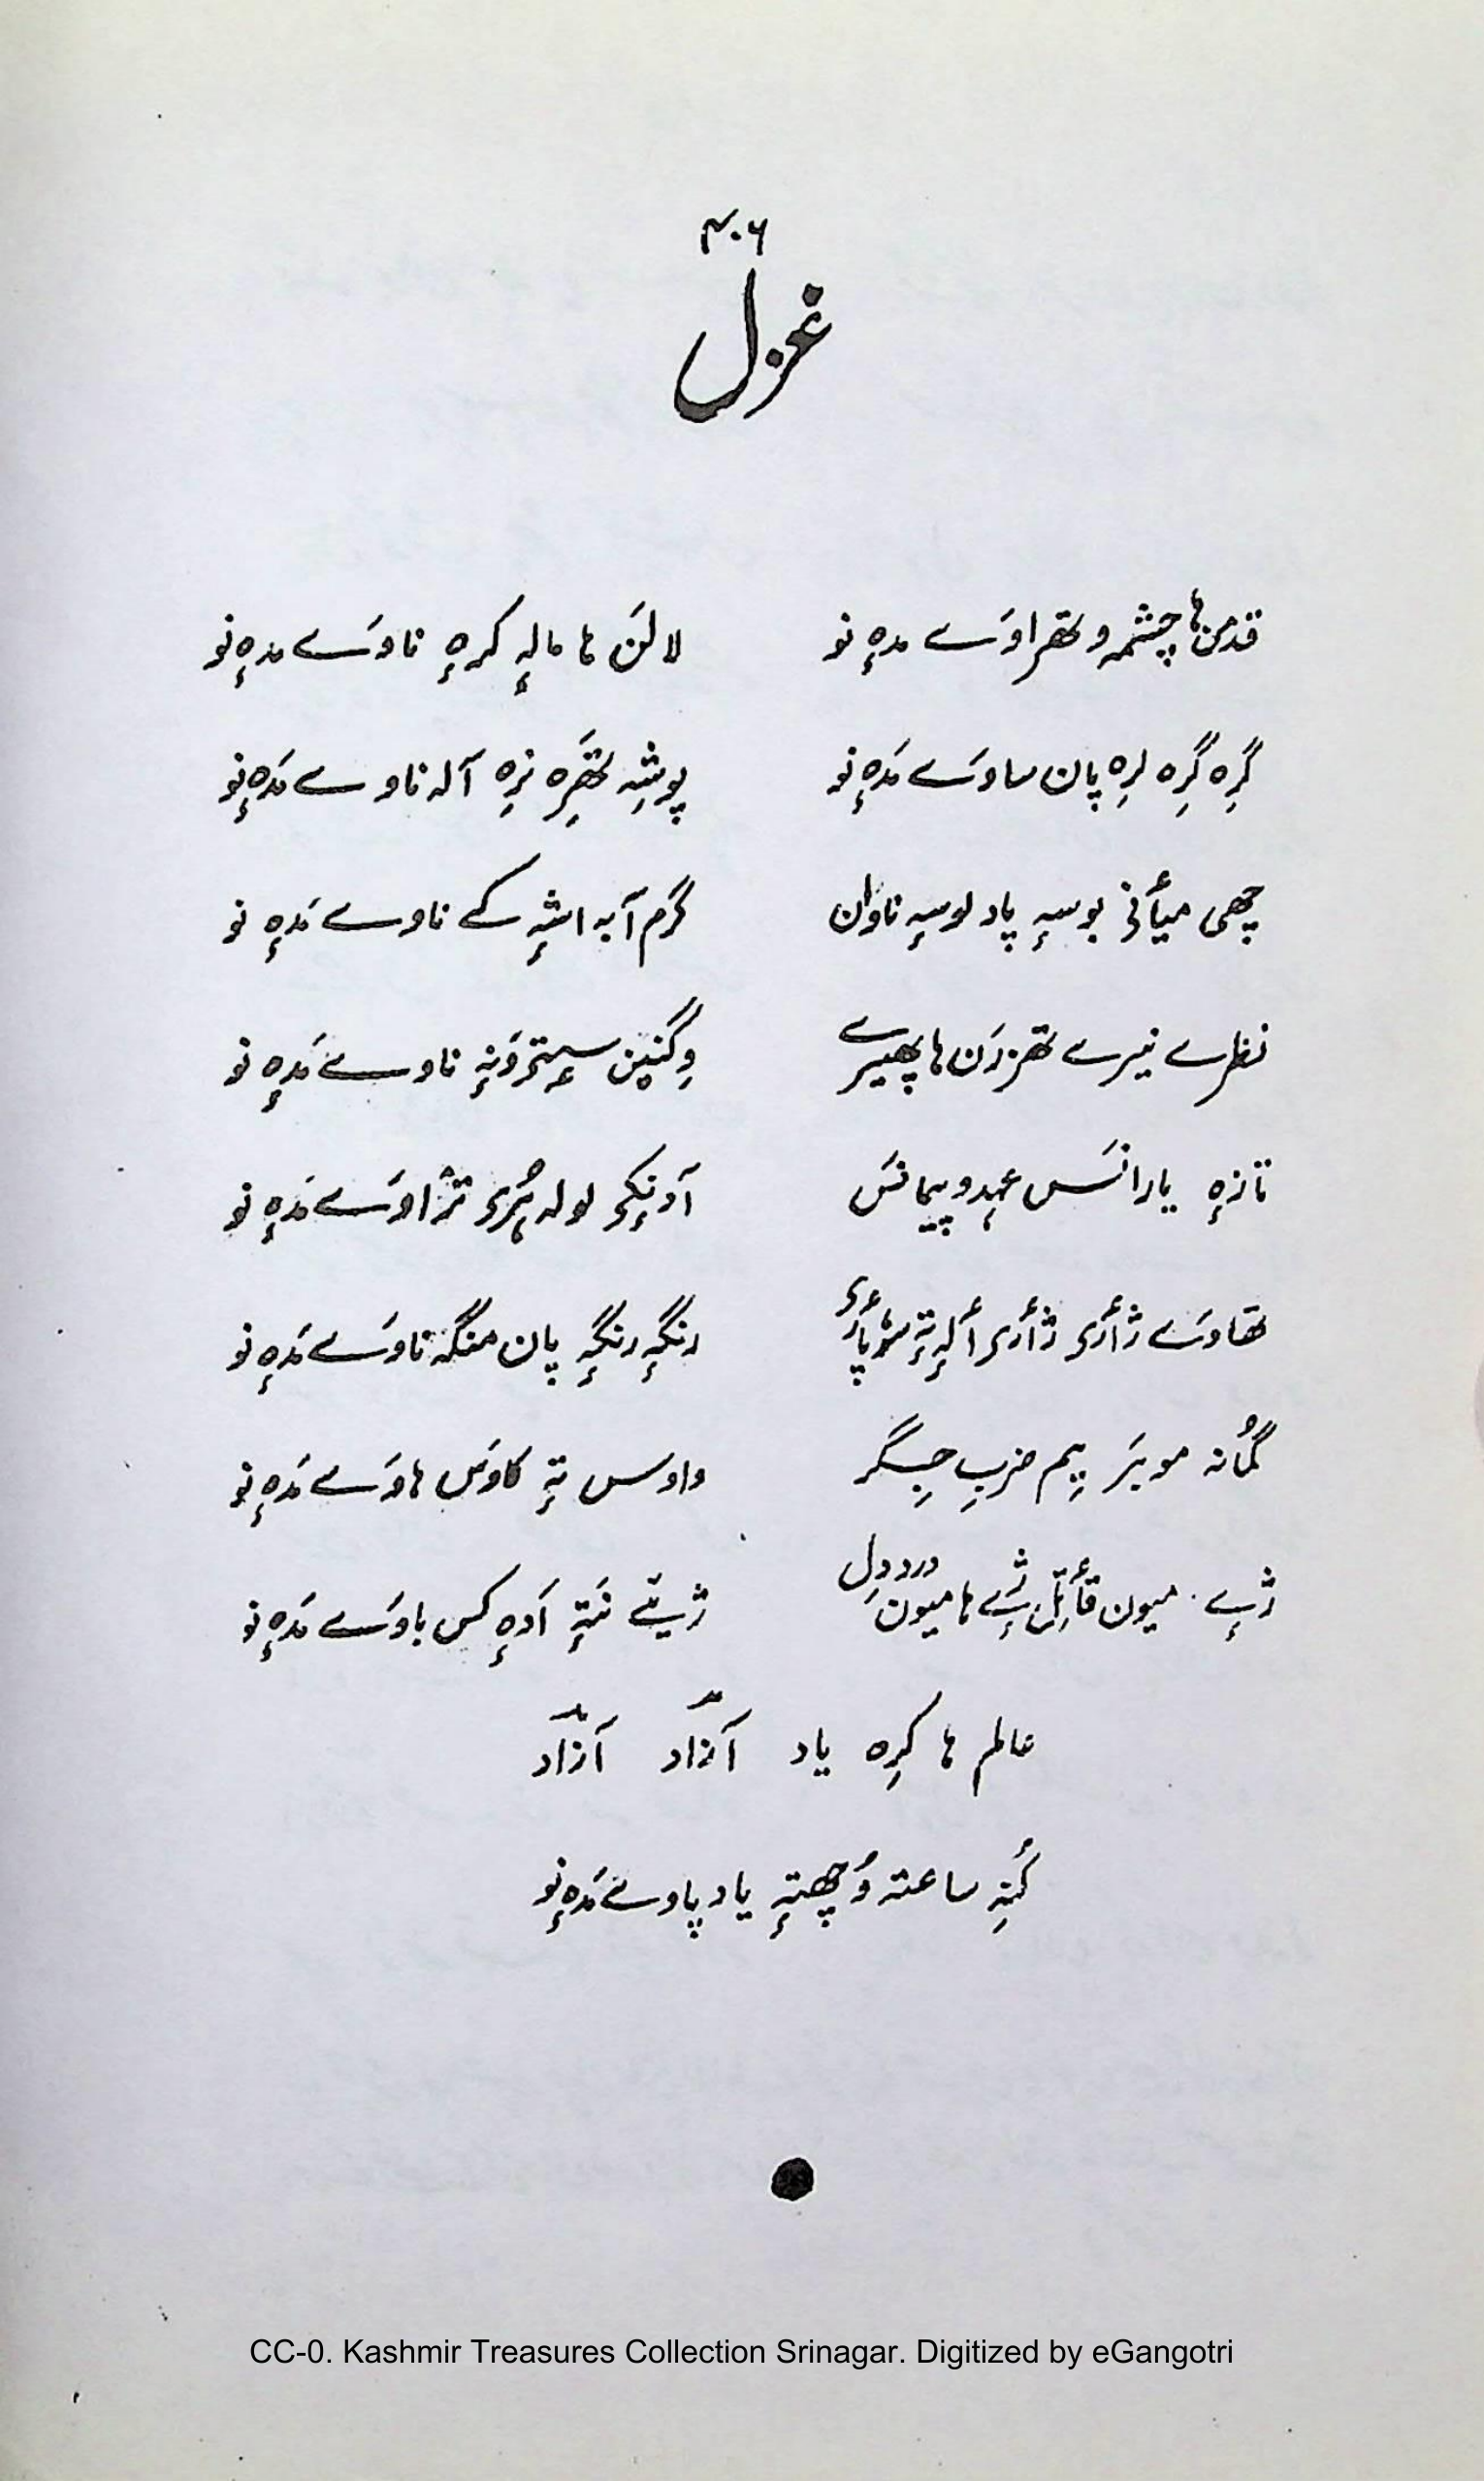 ۴۰۶
غزل
قدمن ہا چشمہ و تھراوَے مدٕہ نو لالَن ہا مالہٕ کرہٕ ناوَے مدٕہ نو
گرِہ گرِہ لرِہ پان ساوَے مَدٕہ نو پوشہِ تھَرِہ نرِہ آلہ ناوے مَدٕہ نو
چھی میأنی بوسہٕ پاد لوسہٕ ناوان گرم آبہ اشہٕ کے ناوے مَدٕہ نو
نظرے نیرے تھزرَن ہا پھیرے وِگنین سٟتی وَنہٕ ناوے مَدٕہ نو
تازہٕ یارانَس عہد و پیمانَس آدنٕکی لولہ ہٕری تراوَے مَدٕہ نو
تھاوَے ژأری ژأری ألہٕ تہٕ پأری رنگہٕ رنگہٕ پان منگہ ناوَے مَدٕہ نو
گُمانہ موبَر یِم ضربِ جِگر واوس تہٕ کاوَس ہاوَے مَدٕہ نو
ژےٕ میون قأتِل ژےٕ ہا میون دردِ دل ژیتے نَتہٕ اَدہٕ کس باوَے مَدٕہ نو
عالم ہا کرِہ یاد آزاد آزاد
کُنہِ ساعتہ وُچھتہٕ یاد پاوے مَدٕہ نو
CC-0. Kashmir Treasures Collection Srinagar. Digitized by eGangotri